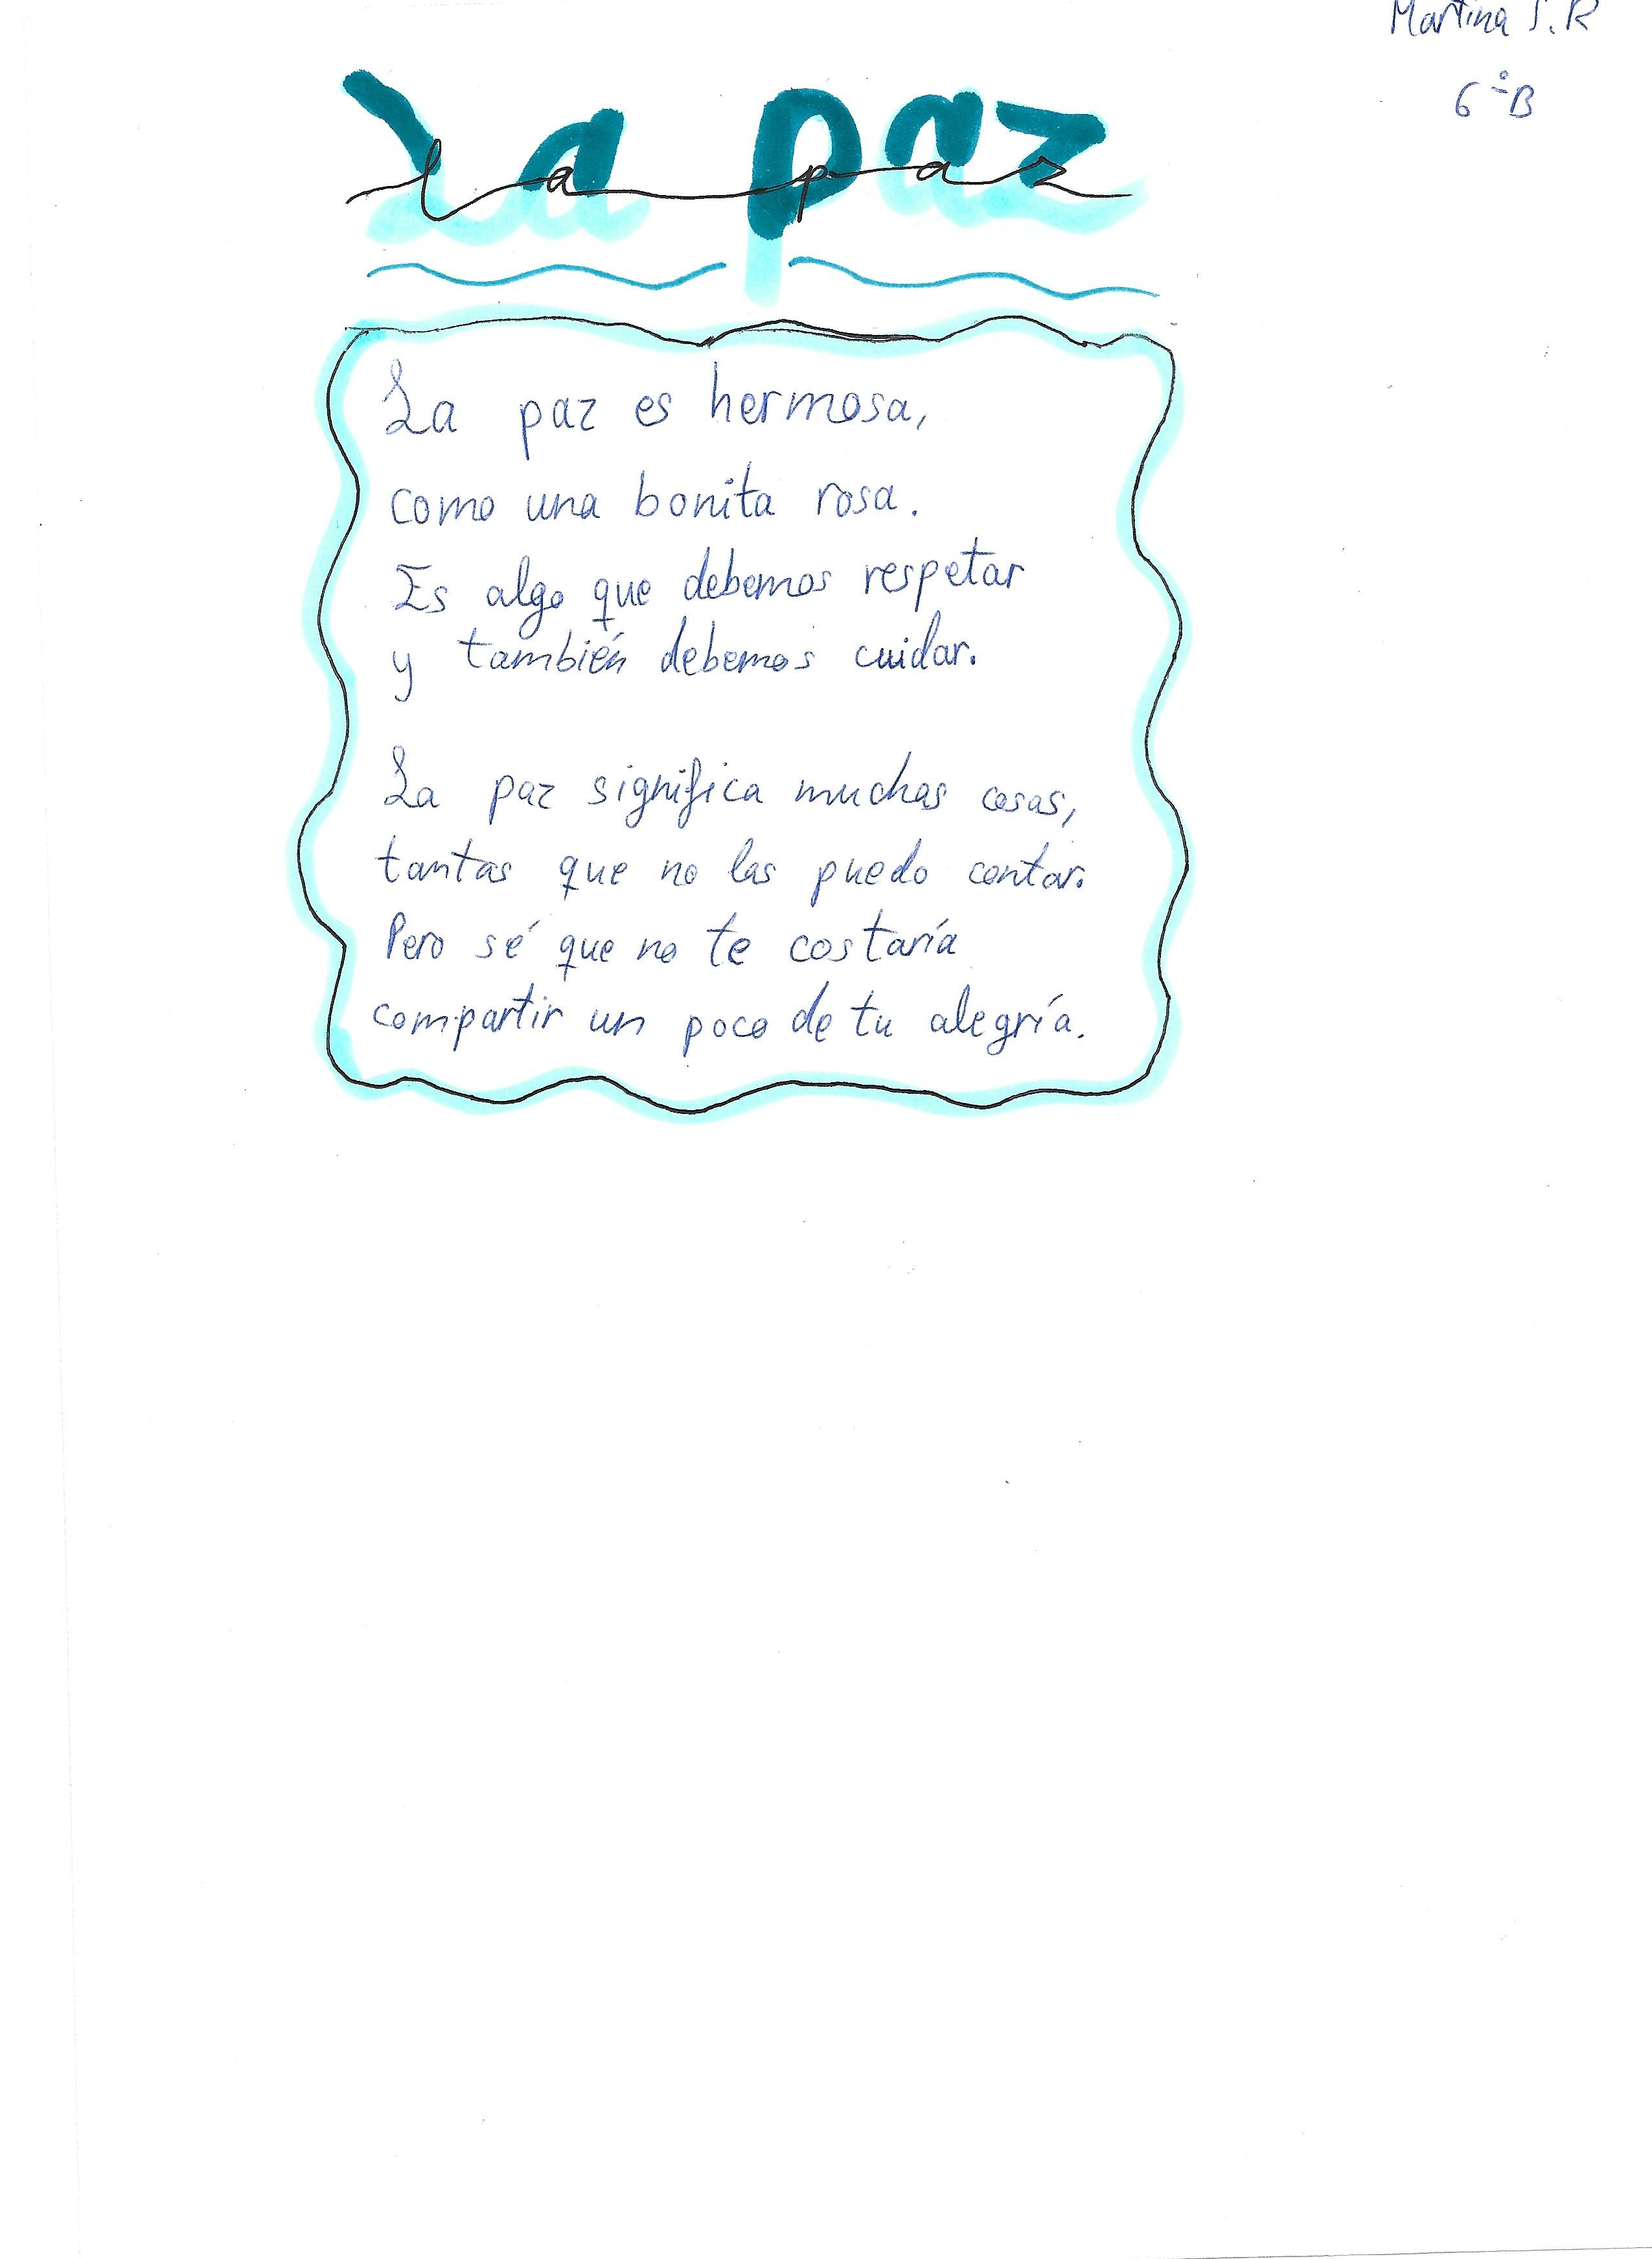 Martina S.R
6ºB
La paz
la paz
La paz es hermosa,
como una bonita rosa.
Es algo que debemos respetar
y también debemos cuidar.
La paz significa muchas cosas,
tantas que no las puedo contar.
Pero sé que no te costaría
compartir un poco de tu alegría.